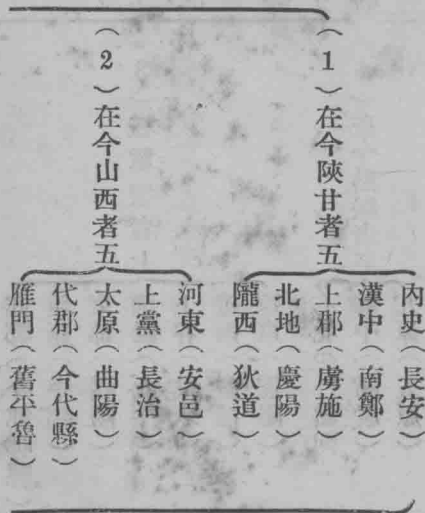 （1）在今陝甘者五
內史（長安）
漢中（南鄭）
上郡（虜施）
北地（慶陽）
隴西（狄道）
（2）在今山西者五
河東（安邑）
上黨（長治）
太原（曲陽）
代郡（今代縣）
雁門（舊平魯）